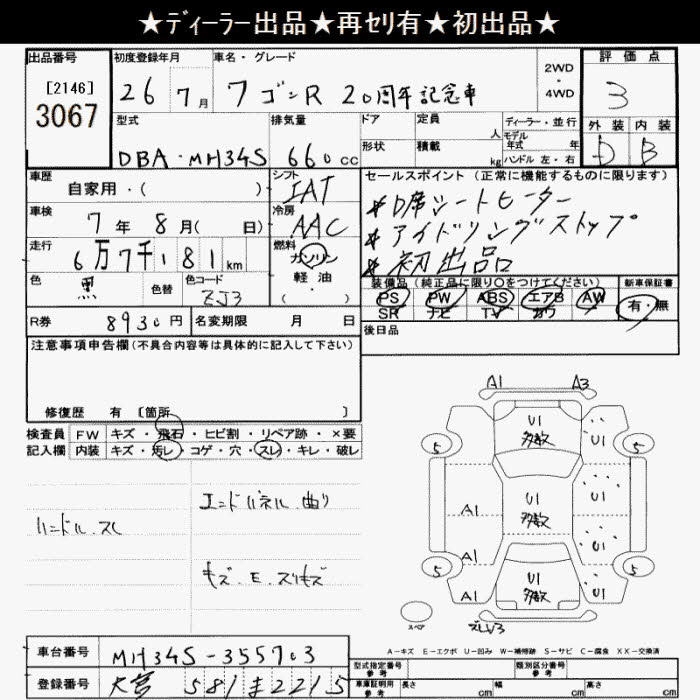 ★ディーラー出品★再セリ有★初出品★
出品番号 初度登録年月 車名・グレード 評価点
[2146] 2WD・4WD
3067 26 7月 ワゴンR 20周年記念車 3
型式 排気量 ドア 定員 人 ディーラー・並行 外装 内装
モデル年式 年
DBA・MH34S 660cc 形状 積載 kg ハンドル 左・右 D B
車歴 シフト セールスポイント (正常に機能するものに限ります)
自家用・( ) IAT
*D席シートヒーター
車検 冷房
7年 8月( 日) AAC *アイドリングストップ
走行 燃料
6万7千181km ガソリン *初出品
軽・油
・( )
色 色替 色コード 装備品 (純正品に限り〇をつけてください) 新車保証書
黒 ZJ3 PS PW ABS エアB AW 有・無
SR ナビ TV カワ
R券 8930円 名変期限 月 日 後日品
注意事項申告欄(不具合内容等は具体的に記入して下さい)
修復歴 有 [箇所 ]
検査員 FW キズ・飛石・ヒビ割・リペア跡・×要
記入欄 内装 キズ・汚レ・コゲ・穴・スレ・キレ・破レ
エンドパネル 曲り
ハンドル.スレ
キズ.E.スリキズ
A1 A3
U1 多数 U1
5 5
A1 U1 多数 U1
A1 U1
5 5
A1 U1 多数 U1
スペア
A-キズ E-エクボ U-凹み W-補修跡 S-サビ C-腐食 XX-交換済
車台番号 MH34S-355703 型式指定番号 参考 類別区分番号 参考
登録番号 大宮 581 ま 2215 車庫証明用 参考 長さ cm 幅 cm 高さ cm